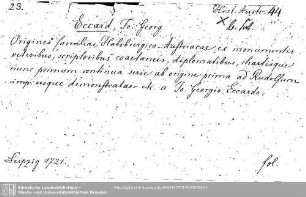 23.
Hist. Austr. 44
Eccard, Jo. Georg
Origines familiae Habsburgico-Austriacae ex monumentis
veteribus, scriptoribus coaetaneis, diplomatibus, chartisque
nunc primum continua serie ab origine prima ad Rudolfum
imp. usque demonstratae etc. a Jo. Georgio Eccardo.
Leipzig 1721. fol.
Sächsische Landesbibliothek -
Staats- und Universitätsbibliothek Dresden